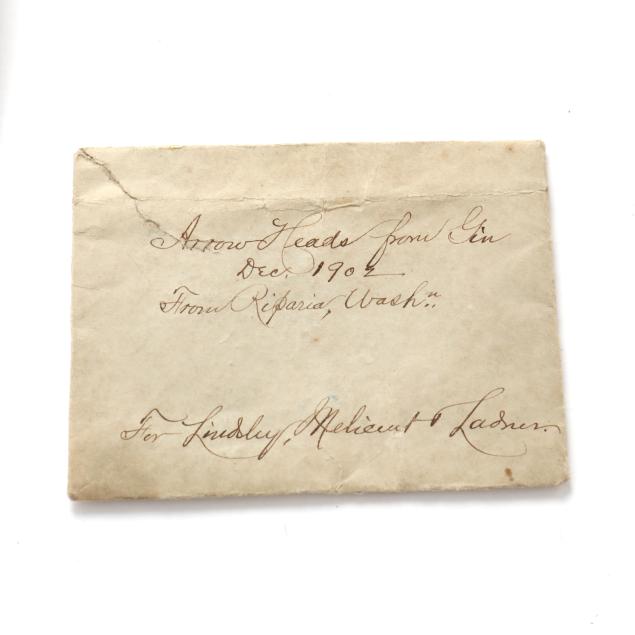 Arrow Heads from Gin
Dec. 1902
From Riparia, Washn.
For Lindsley, Melicent & Ladner.